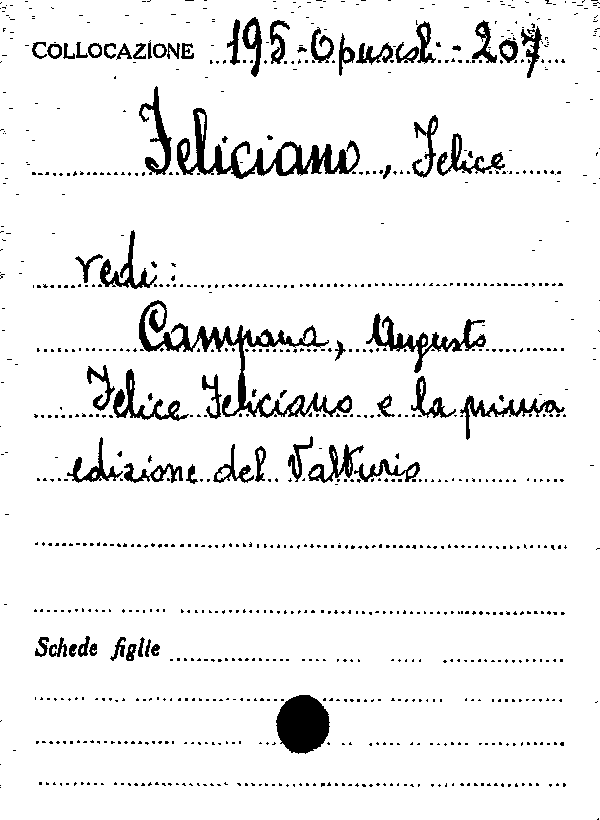 COLLOCAZIONE 195-Opuscoli-207
Feliciano, Felice
vedi:
Campana, Augusto
Felice Feliciano e la prima
edizione del Valturio
Schede figlie